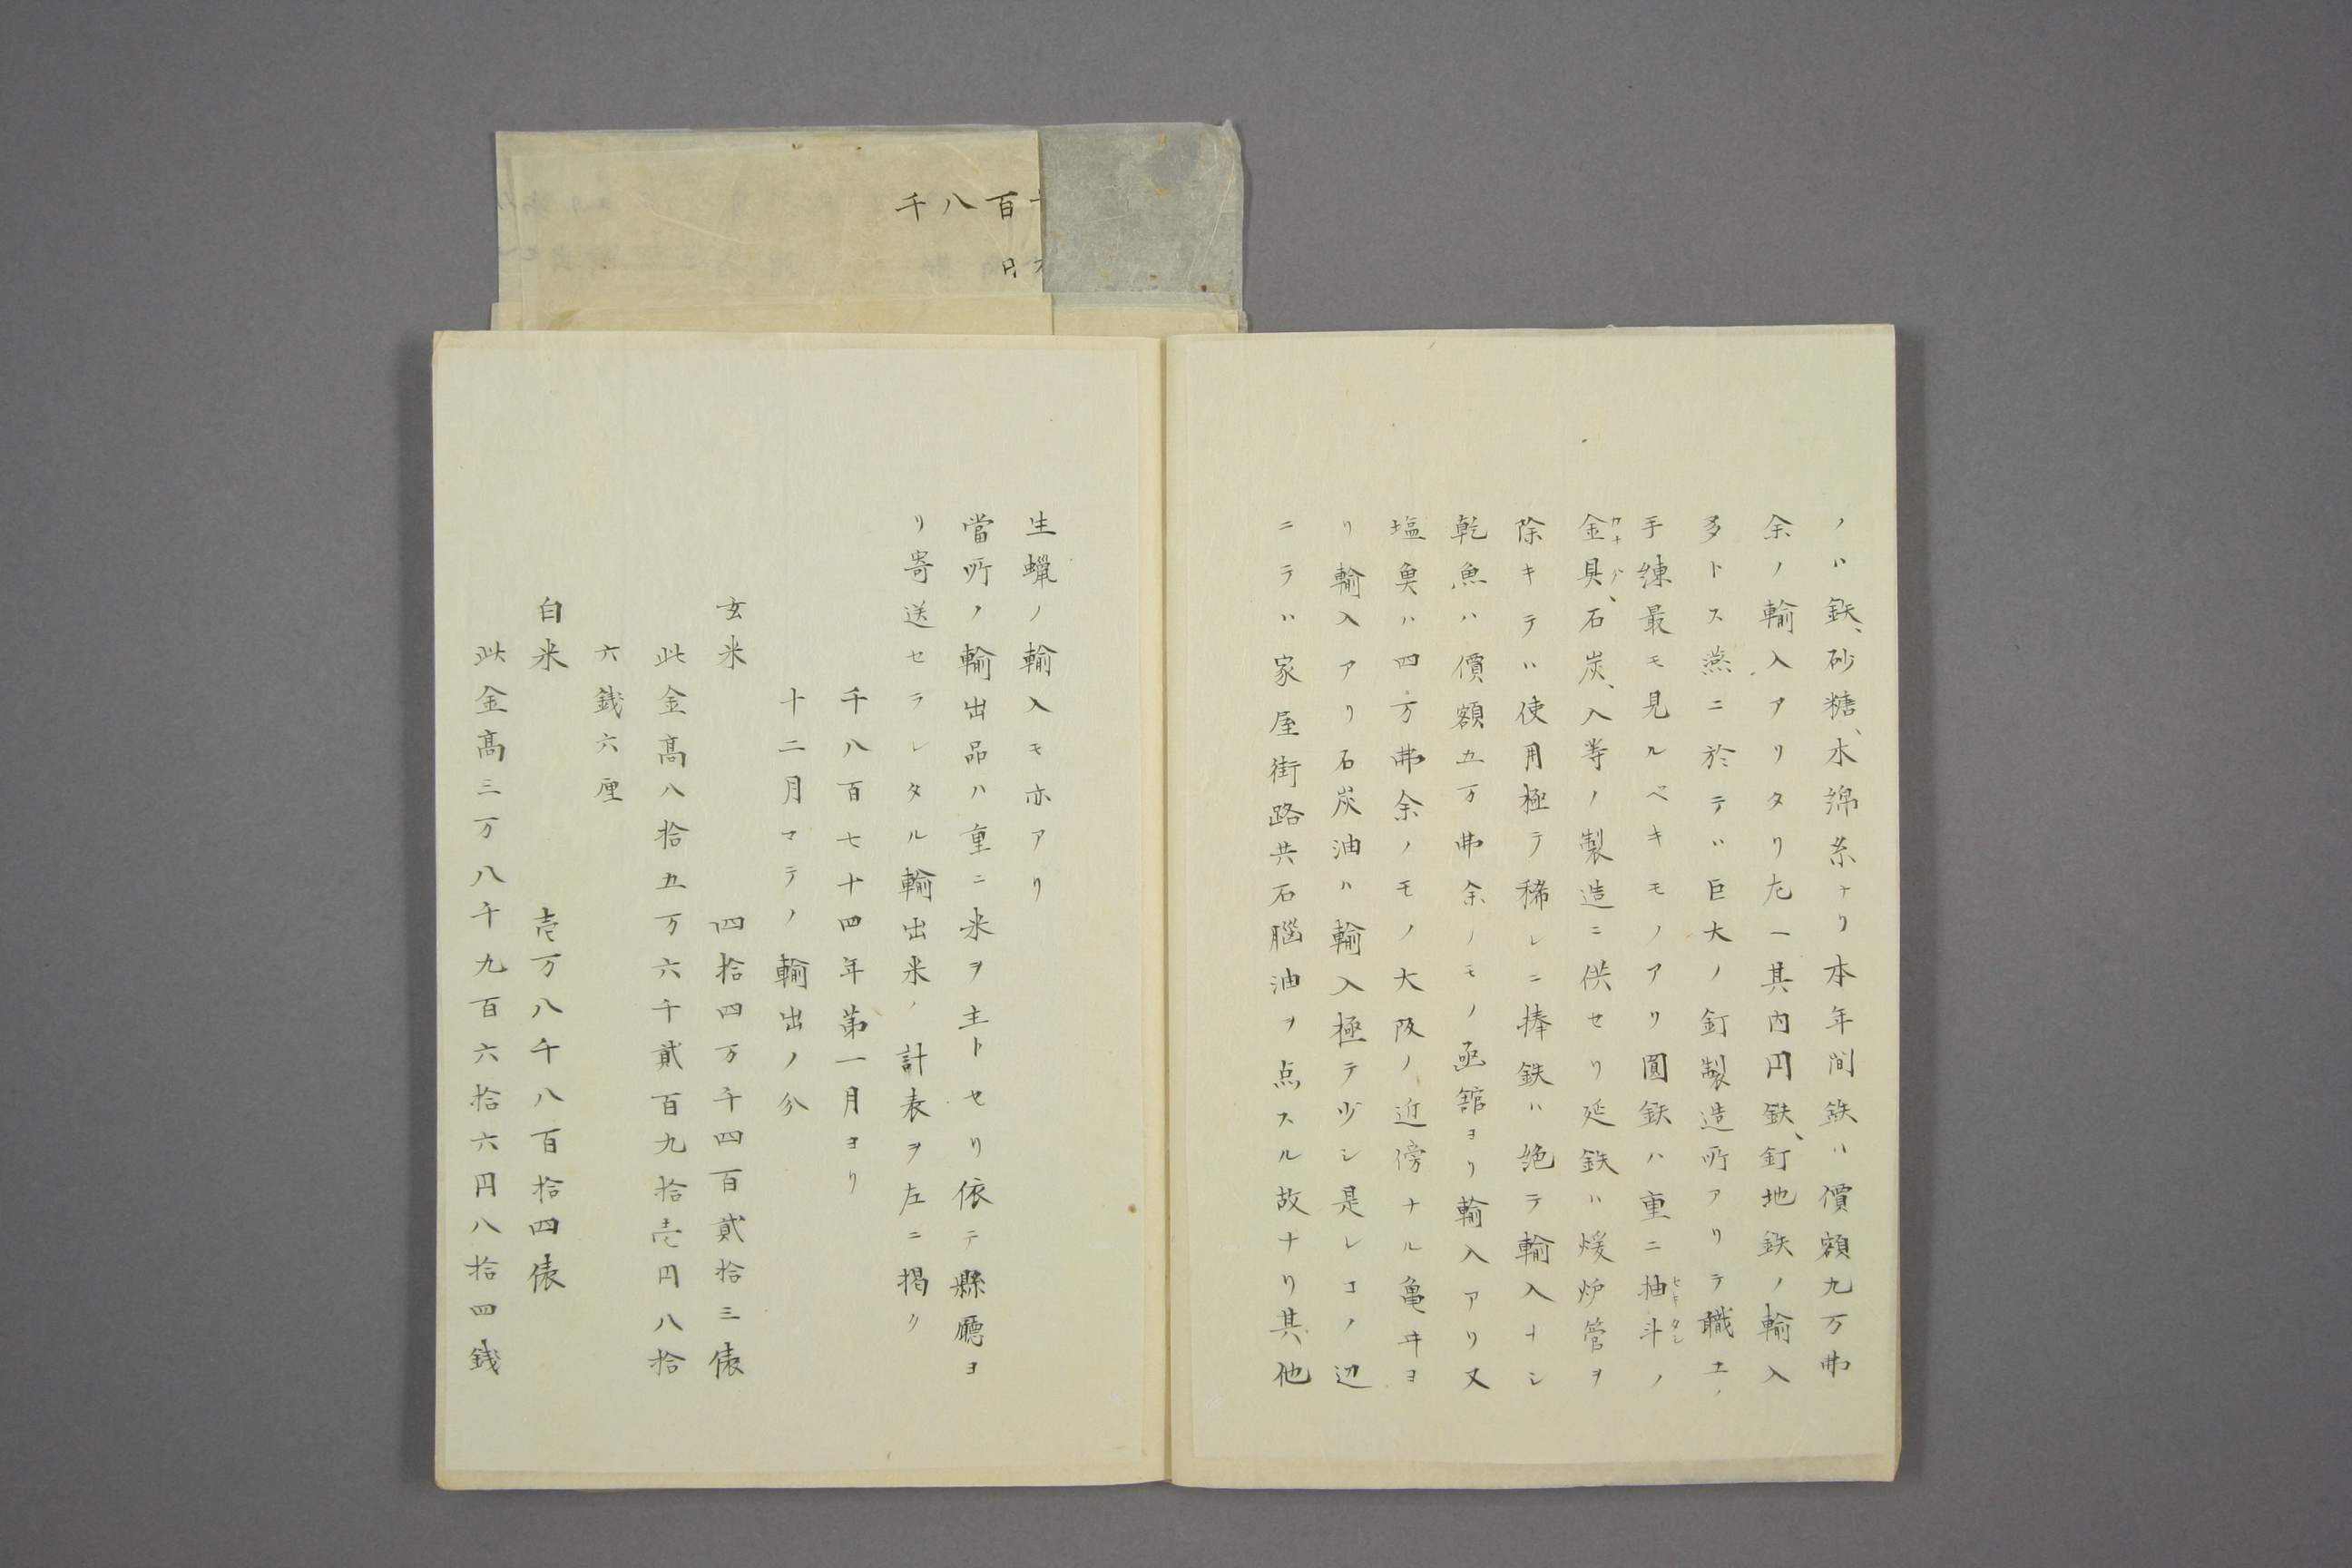 ノハ鉄、砂糖、水綿糸ナリ本年間鉄ハ價額九万弗
余ノ輸入アリタリ尤一其内円鉄、釘地鉄ノ輸入
多トス燕ニ於テハ巨大ノ釘製造所アリテ職工ノ
手練最モ見ルベキモノアリ圓鉄ハ重ニ抽斗ノ
金具、石炭、入等ノ製造ニ供セリ延鉄ハ煖炉管ヲ
除キテハ使用極テ稀レニ捧鉄ハ絶テ輸入ナシ
乾魚ハ價額五万弗余ノモノ函舘ヨリ輸入アリ又
塩魚ハ四万弗余ノモノ大阪ノ近傍ナル亀井ヨ
リ輸入アリ石炭油ハ輸入極テ少シ是レコノ辺
ニテハ家屋街路共石腦油ヲ点スル故ナリ其他
千八百
月
生蠟ノ輸入モ亦アリ
當所ノ輸出品ハ重ニ米ヲ主トセリ依テ縣廳ヨ
リ寄送セラレタル輸出米ノ計表ヲ左ニ掲ク
千八百七十四年第一月ヨリ
十二月マテノ輸出ノ分
玄米 四拾四万千四百貳拾三俵
此金高八拾五万六千貳百九拾壱円八拾
六銭六厘
白米 壱万八千八百拾四俵
此金高三万八千九百六拾六円八拾四銭